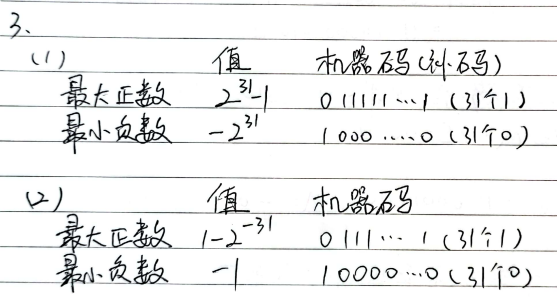 3.
(1) 值 机器码(补码)
最大正数 2^31-1 011111…1 (31个1)
最小负数 -2^31 1000……0 (31个0)
(2) 值 机器码
最大正数 1-2^-31 0111…1 (31个1)
最小负数 -1 10000…0 (31个0)